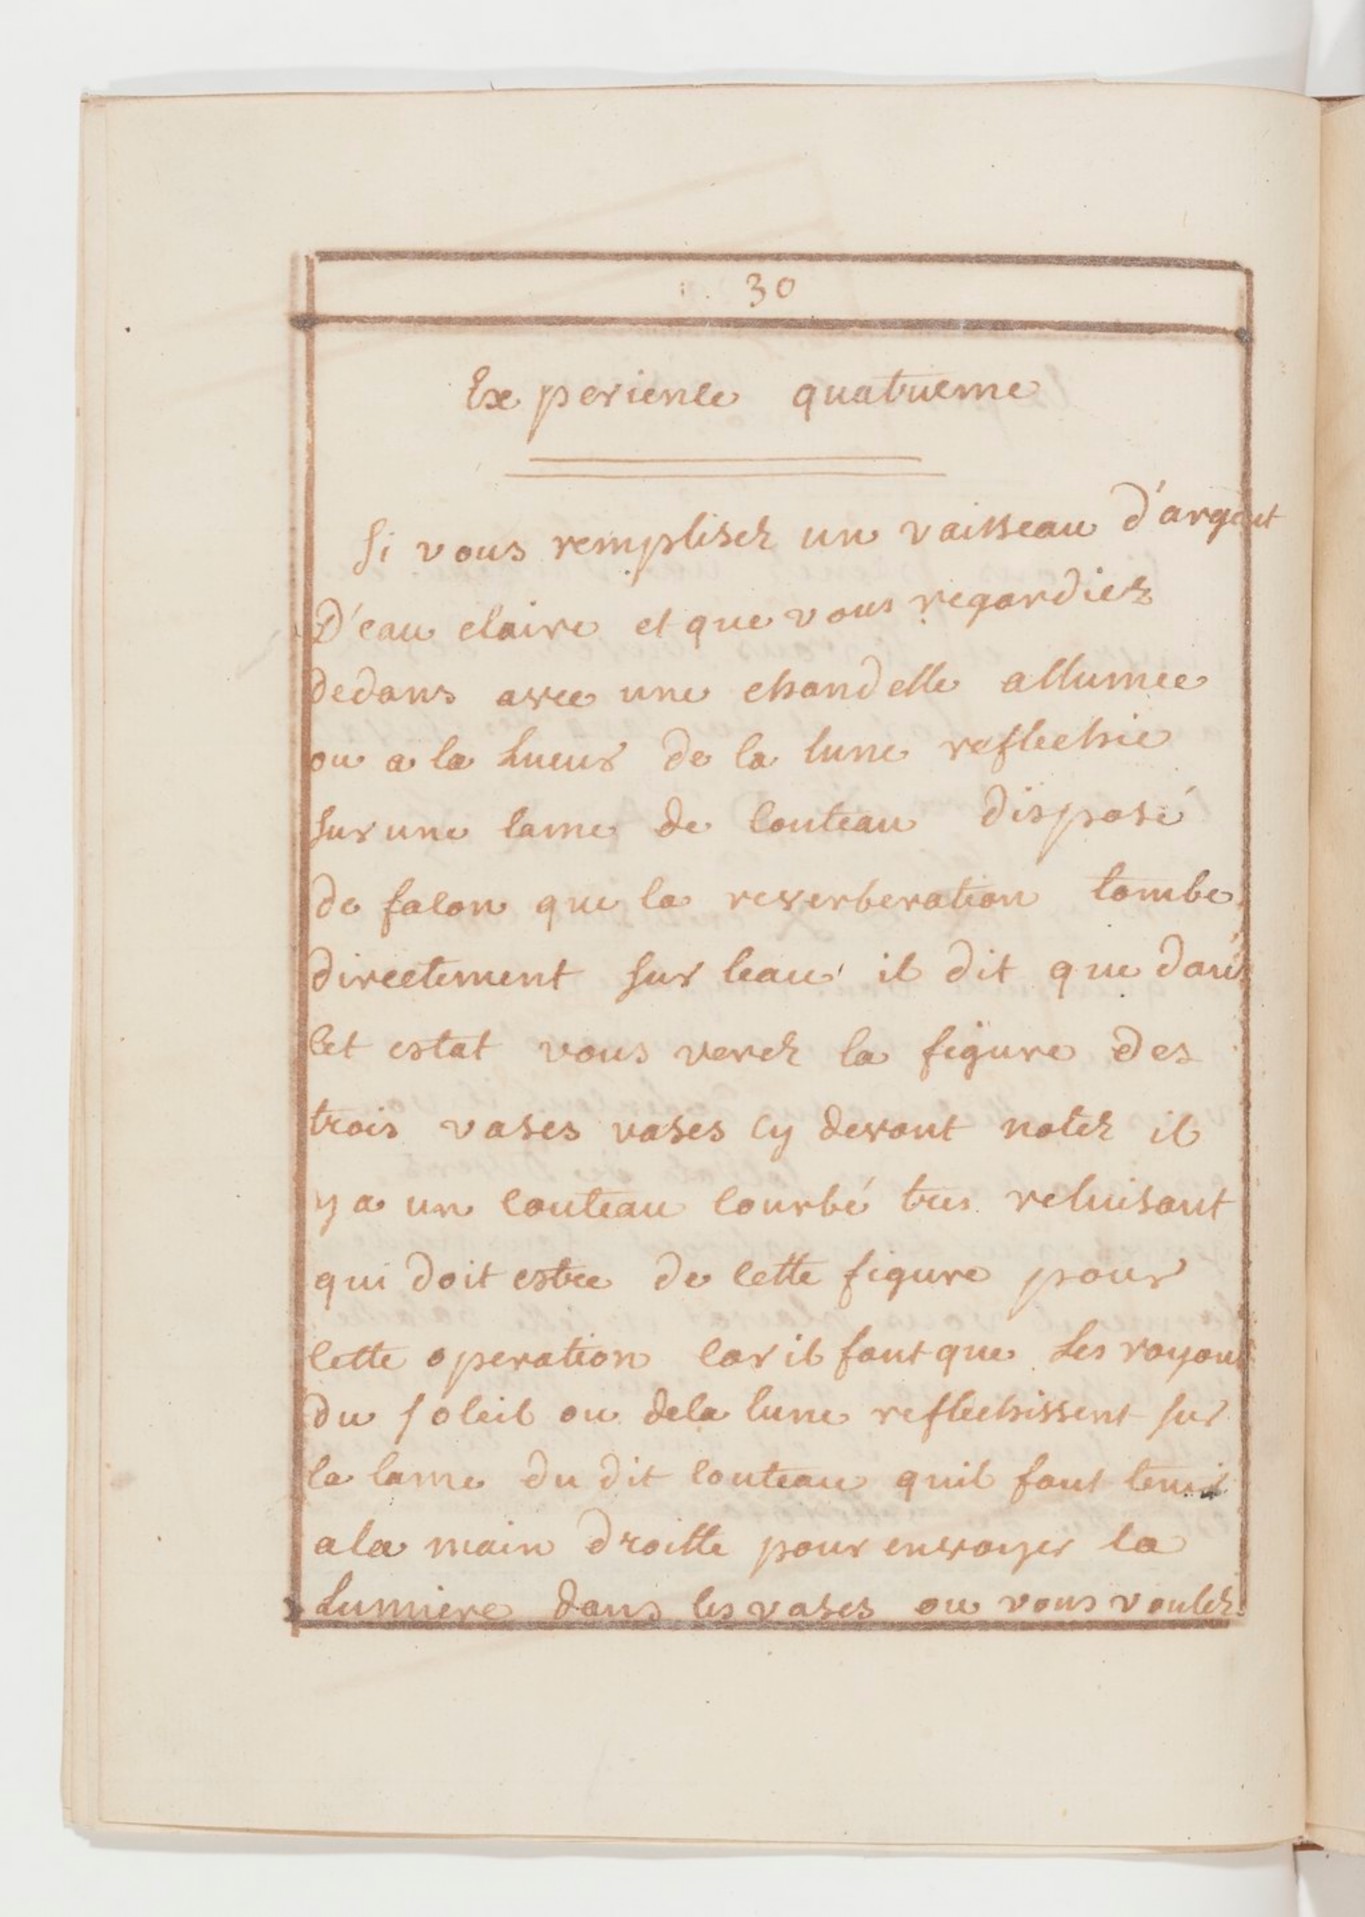 30
Experience quatrieme
Si vous remplisez un vaisseau d'argent
D'eau claire et que vous regardiez
dedans avec une chandelle allumee
ou a la Lueur de la lune reflechie
sur une lame de couteau disposé
de facon que la reverberation tombe
directement sur leau il dit que dans
cet estat vous verez la figure des
trois vases vases cy devant notez il
y a un couteau courbé tres reluisant
qui doit estre de cette figure pour
cette operation car il faut que Les rayons
du soleil ou dela lune reflechissent sur
la lame du dit couteau quil faut tenir
ala main droitte pour envoyer la
Lumiere dans les vases ou vous voulez